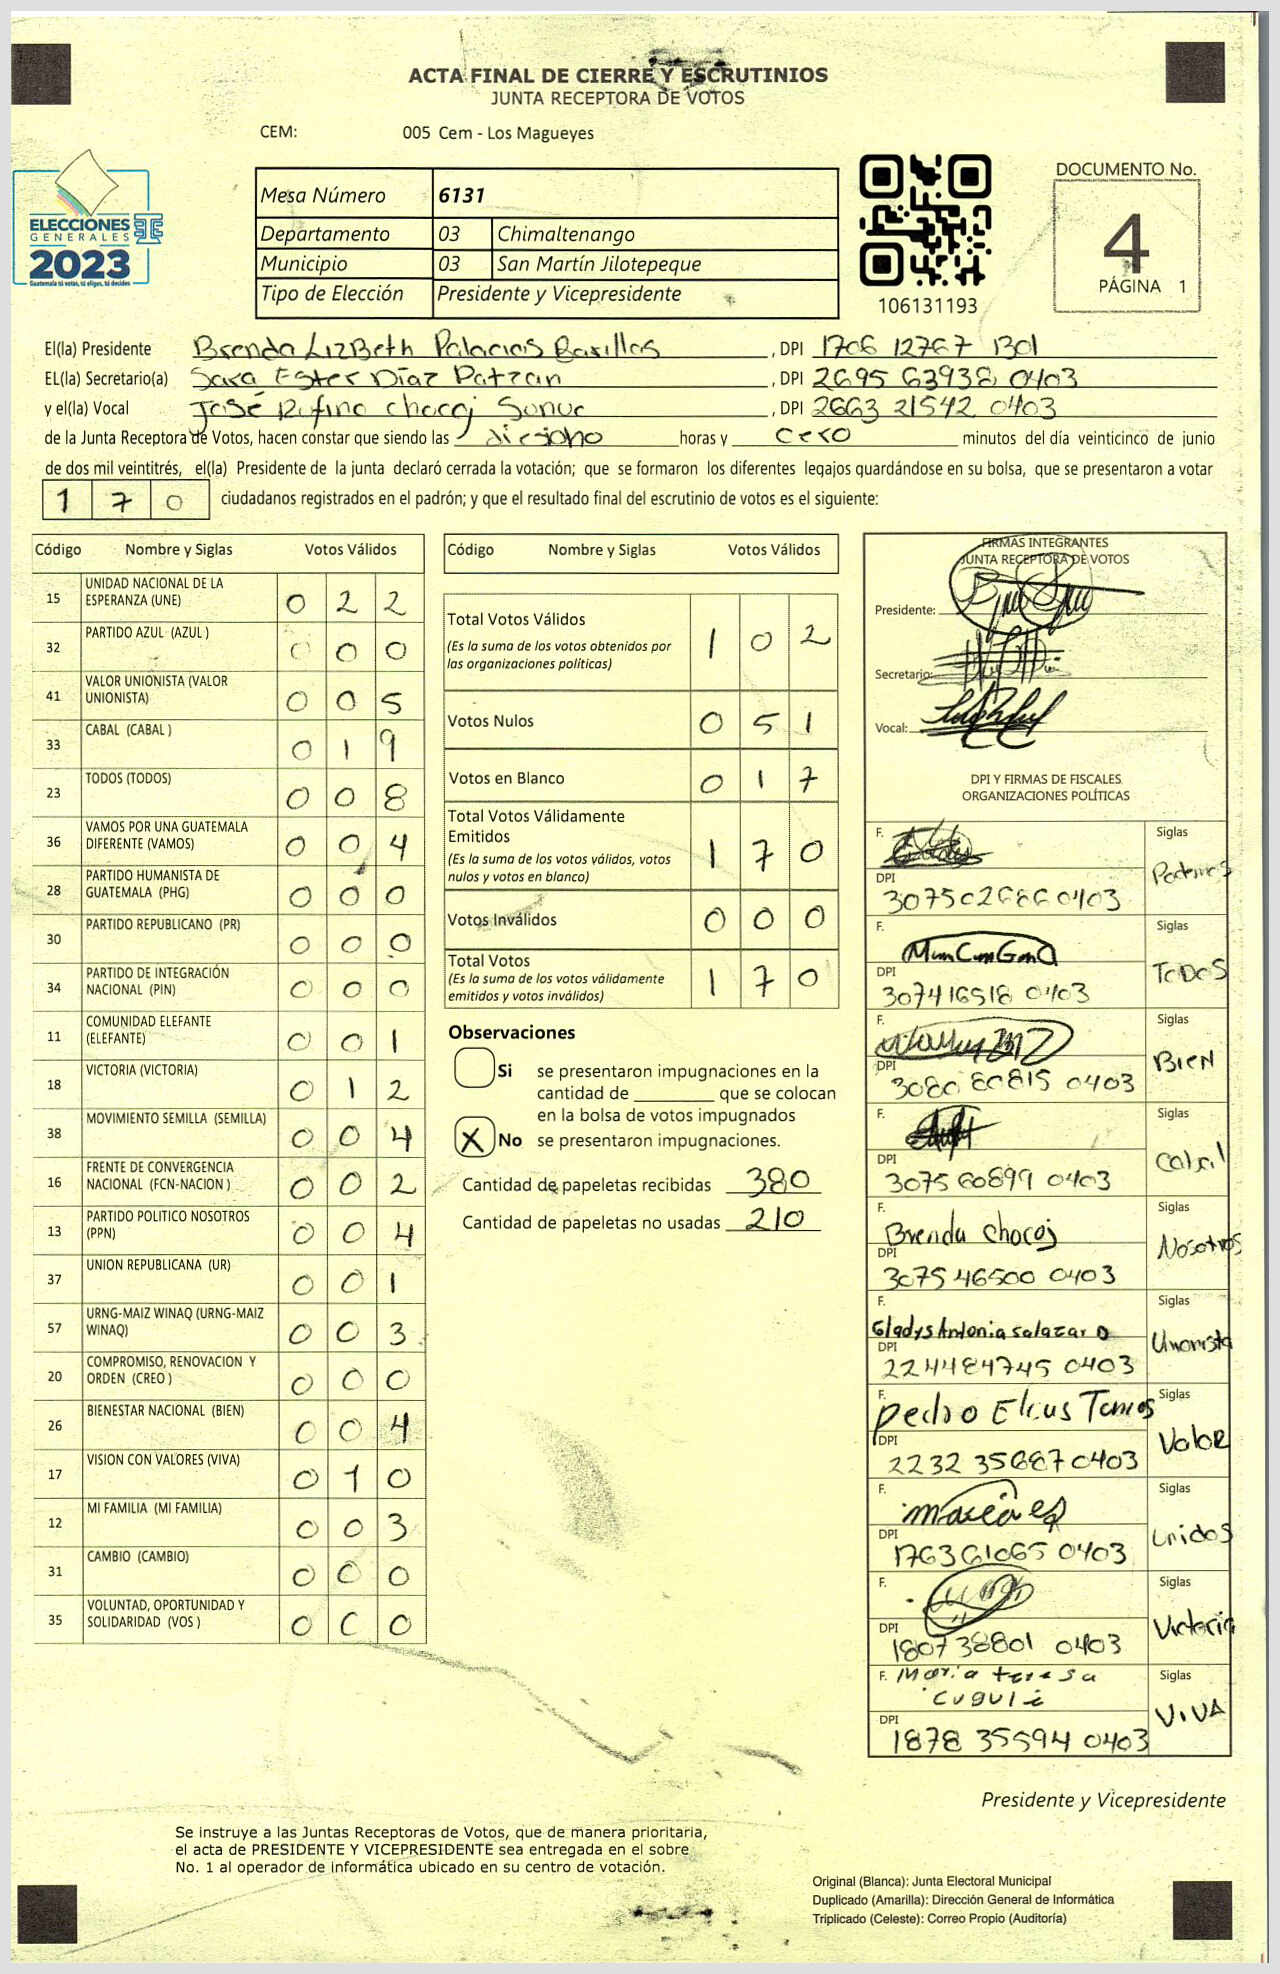 ACTA FINAL DE CIERRE Y ESCRUTINIOS
JUNTA RECEPTORA DE VOTOS
CEM: 005 Cem - Los Magueyes
ELECCIONES
GENERALES
2023
Guatemala tú votas, tú eliges, tú decides
Mesa Número 6131
Departamento 03 Chimaltenango
Municipio 03 San Martín Jilotepeque
Tipo de Elección Presidente y Vicepresidente
106131193
DOCUMENTO No.
4
PÁGINA 1
El(la) Presidente Brenda LizBeth Palacios Barillas , DPI 1706 12767 1301
EL(la) Secretario(a) Sara Ester Díaz Patzan , DPI 2695 63938 0403
y el(la) Vocal José Rufino Chocoj Sunuc , DPI 2663 21542 0403
de la Junta Receptora de Votos, hacen constar que siendo las diesioho horas y cero minutos del día veinticinco de junio
de dos mil veintitrés, el(la) Presidente de la junta declaró cerrada la votación; que se formaron los diferentes legajos quardándose en su bolsa, que se presentaron a votar
170 ciudadanos registrados en el padrón; y que el resultado final del escrutinio de votos es el siguiente:
Código Nombre y Siglas Votos Válidos
15 UNIDAD NACIONAL DE LA ESPERANZA (UNE) 0 2 2
32 PARTIDO AZUL (AZUL ) 0 0 0
41 VALOR UNIONISTA (VALOR UNIONISTA) 0 0 5
33 CABAL (CABAL ) 0 1 9
23 TODOS (TODOS) 0 0 8
36 VAMOS POR UNA GUATEMALA DIFERENTE (VAMOS) 0 0 4
28 PARTIDO HUMANISTA DE GUATEMALA (PHG) 0 0 0
30 PARTIDO REPUBLICANO (PR) 0 0 0
34 PARTIDO DE INTEGRACIÓN NACIONAL (PIN) 0 0 0
11 COMUNIDAD ELEFANTE (ELEFANTE) 0 0 1
18 VICTORIA (VICTORIA) 0 1 2
38 MOVIMIENTO SEMILLA (SEMILLA) 0 0 4
16 FRENTE DE CONVERGENCIA NACIONAL (FCN-NACION ) 0 0 2
13 PARTIDO POLITICO NOSOTROS (PPN) 0 0 4
37 UNION REPUBLICANA (UR) 0 0 1
57 URNG-MAIZ WINAQ (URNG-MAIZ WINAQ) 0 0 3
20 COMPROMISO, RENOVACION Y ORDEN (CREO ) 0 0 0
26 BIENESTAR NACIONAL (BIEN) 0 0 4
17 VISION CON VALORES (VIVA) 0 1 0
12 MI FAMILIA (MI FAMILIA) 0 0 3
31 CAMBIO (CAMBIO) 0 0 0
35 VOLUNTAD, OPORTUNIDAD Y SOLIDARIDAD (VOS ) 0 0 0
Código Nombre y Siglas Votos Válidos
Total Votos Válidos 1 0 2
(Es la suma de los votos obtenidos por
las organizaciones políticas)
Votos Nulos 0 5 1
Votos en Blanco 0 1 7
Total Votos Válidamente
Emitidos 1 7 0
(Es la suma de los votos válidos, votos
nulos y votos en blanco)
Votos Inválidos 0 0 0
Total Votos 1 7 0
(Es la suma de los votos válidamente
emitidos y votos inválidos)
Observaciones
Si se presentaron impugnaciones en la
cantidad de ________ que se colocan
en la bolsa de votos impugnados
X No se presentaron impugnaciones.
Cantidad de papeletas recibidas 380
Cantidad de papeletas no usadas 210
FIRMAS INTEGRANTES
JUNTA RECEPTORA DE VOTOS
Presidente:
Secretario:
Vocal:
DPI Y FIRMAS DE FISCALES
ORGANIZACIONES POLÍTICAS
F. Siglas Podemos
DPI 307502686 0403
F. Siglas TODOS
DPI 307416518 0403
F. Siglas BIEN
DPI 3080 80815 0403
F. Siglas Cabal
DPI 3075 60899 0403
F. Brenda Chocoj Siglas Nosotros
DPI 3075 46500 0403
F. Gladys Antonia Salazar O Siglas Unionista
DPI 224484745 0403
F. Pedro Elias Siglas Valor
DPI 2232 35687 0403
F. Siglas Unidos
DPI 1763 61065 0403
F. Siglas Victoria
DPI 1807 38801 0403
F. Maria teresa Siglas VIVA
DPI 1878 35594 0403
Presidente y Vicepresidente
Se instruye a las Juntas Receptoras de Votos, que de manera prioritaria,
el acta de PRESIDENTE Y VICEPRESIDENTE sea entregada en el sobre
No. 1 al operador de informática ubicado en su centro de votación.
Original (Blanca): Junta Electoral Municipal
Duplicado (Amarilla): Dirección General de Informática
Triplicado (Celeste): Correo Propio (Auditoría)